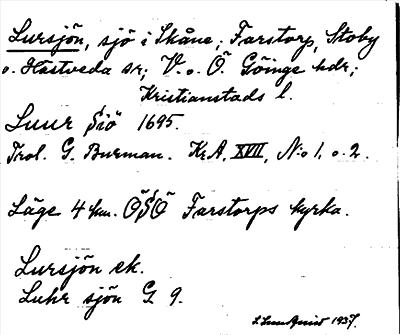 Lursjön, sjö i Skåne; Farstorp, Stoby
o. Hästveda sr; V. o. Ö. Göinge hdr;
Kristianstads l.
Luur Siö 1695.
Trol. G. Burman. Kr.A. XVII, N:o 1, o. 2.
Läge 4 km. ÖSÖ Farstorps kyrka.
Lursjön ek.
Luhr sjön G 9.
1937.